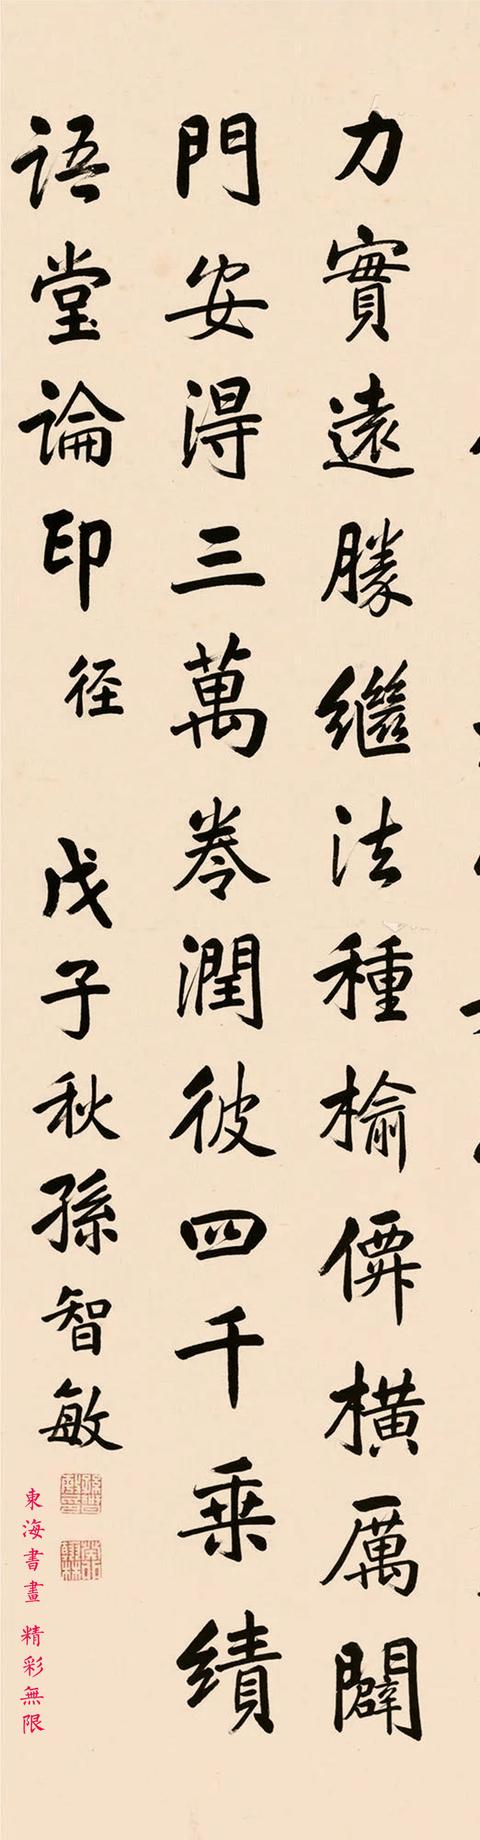 力實遠勝繼法種榆僊橫厲闢
門安得三萬卷潤彼四千乘績
語堂論印 徑 戊子秋孫智敏
東海書畫 精彩無限